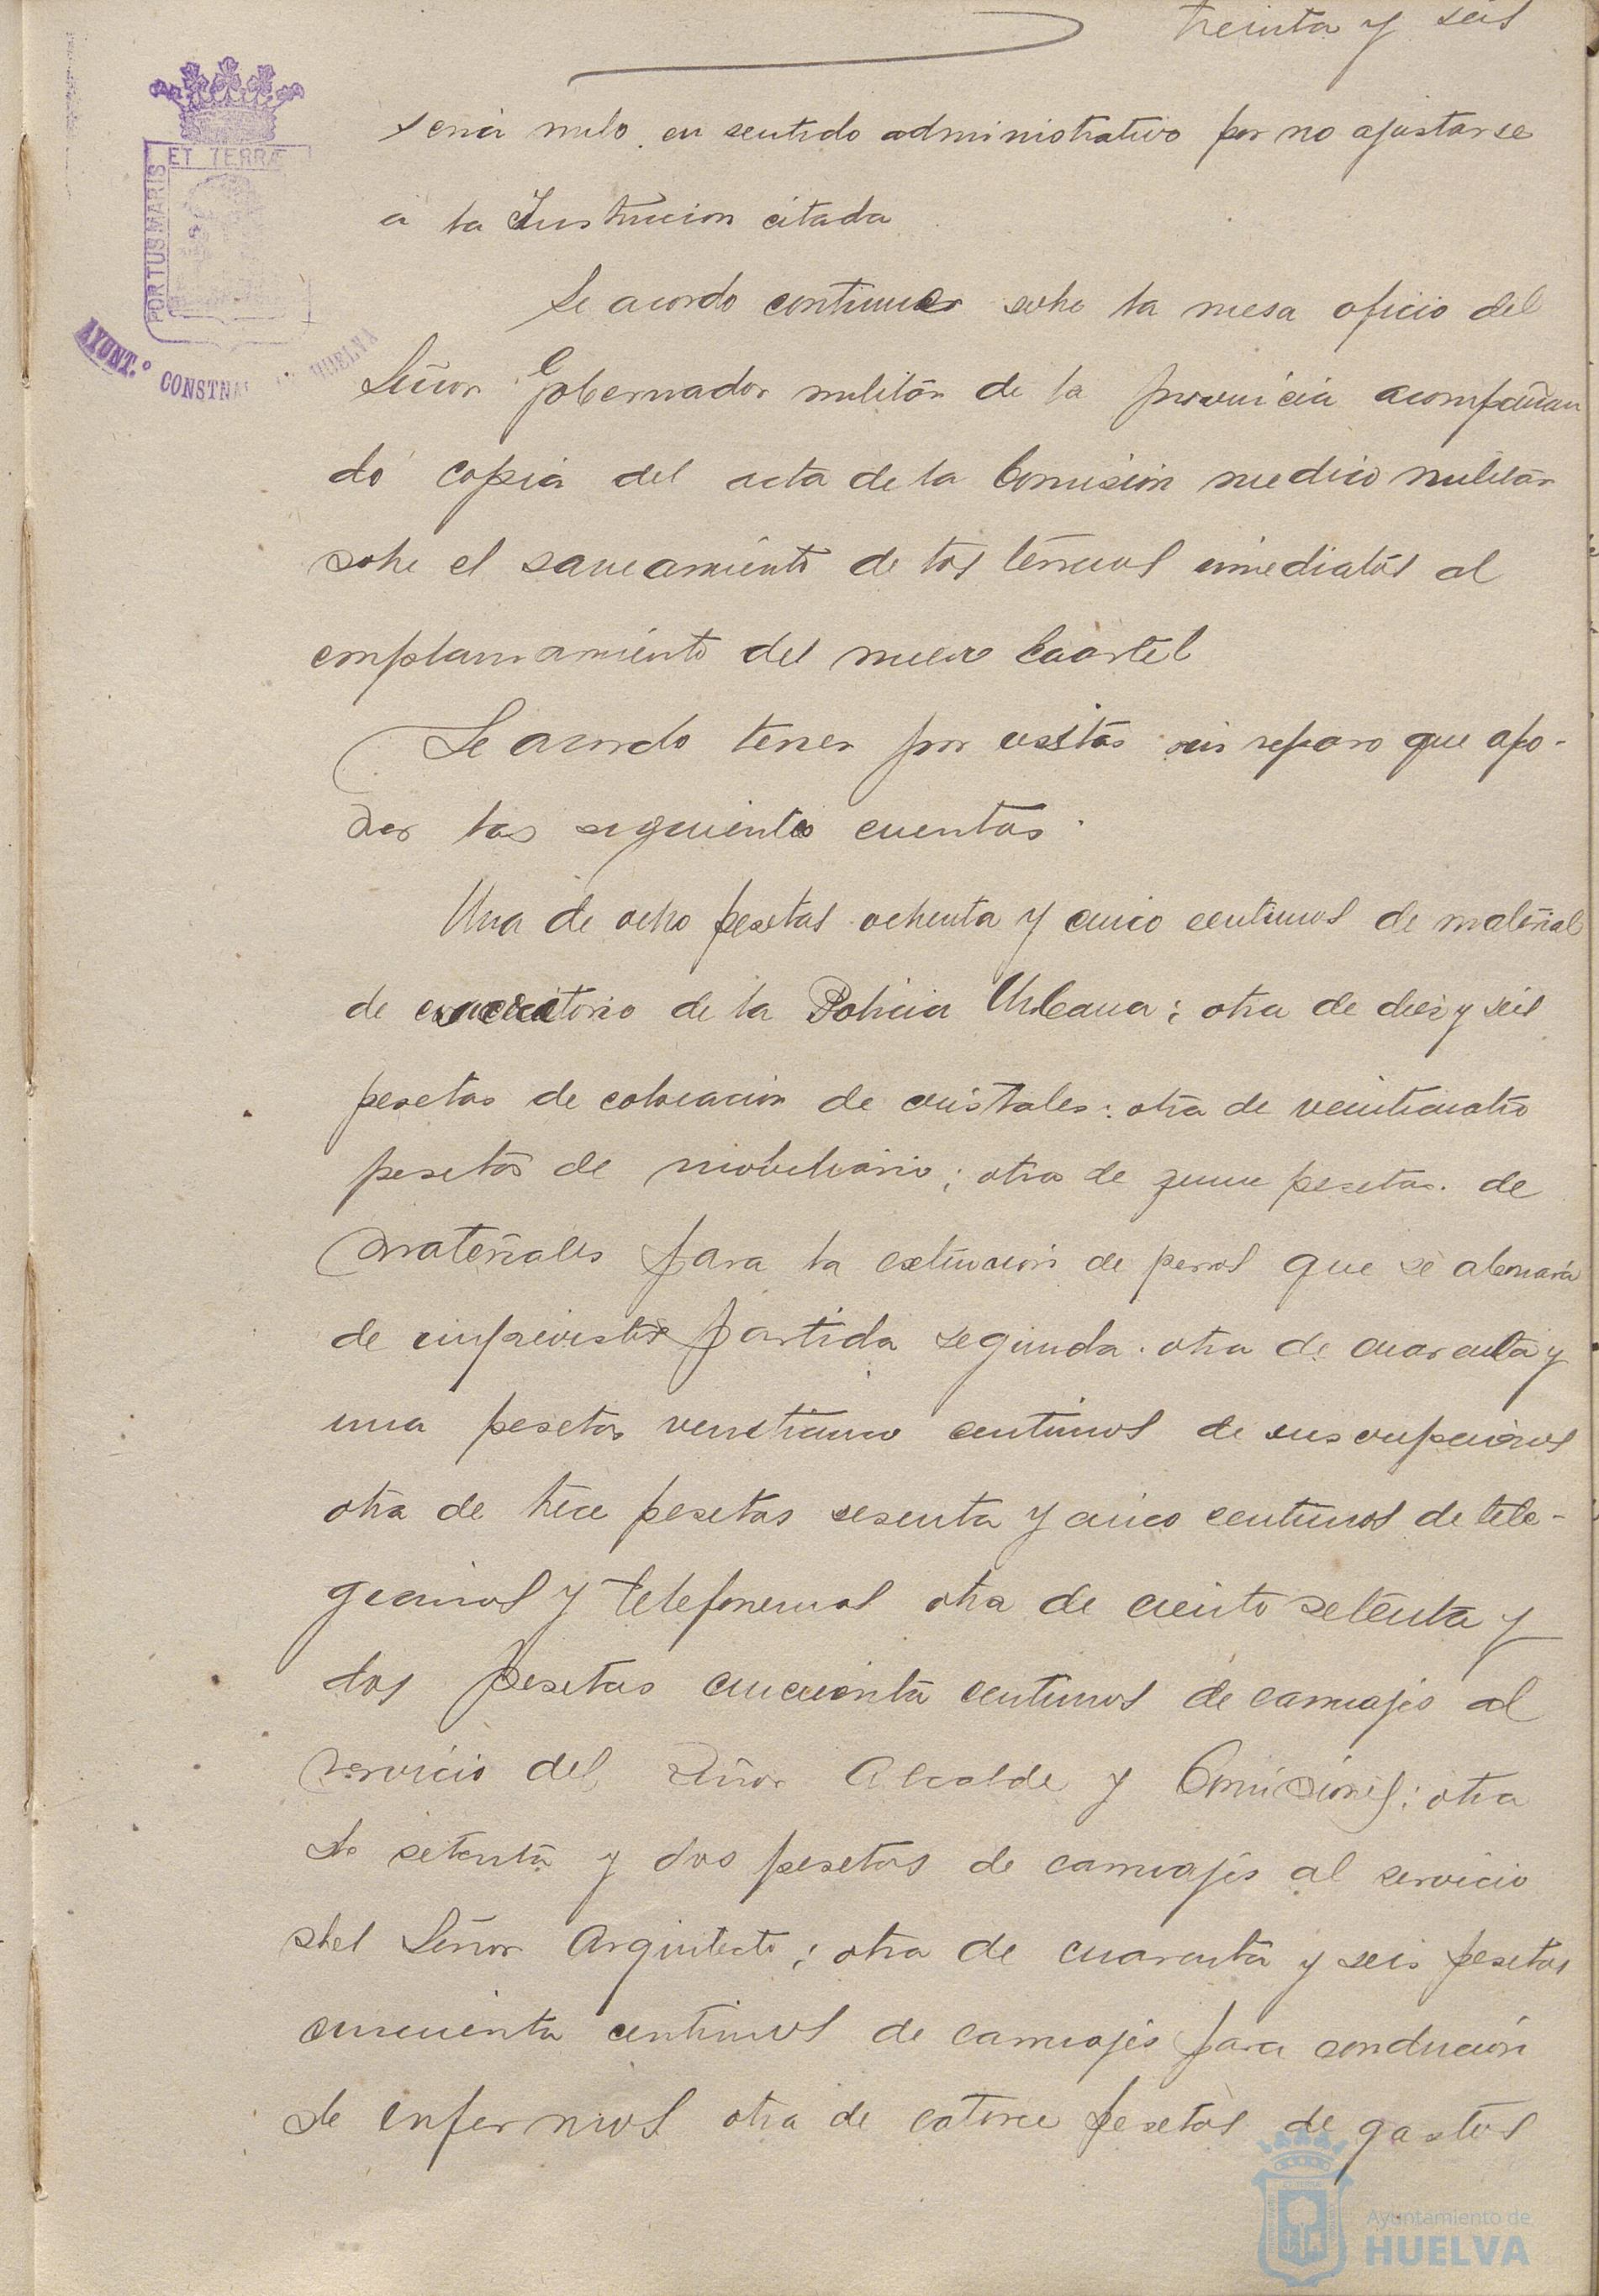 treinta y seis
seria nulo en sentido administrativo por no ajustarse
a la Instrucion citada
Se acordo continuar sobre la mesa oficio del
Señor Gobernador militar de la provincia acompañan
do copia del acta de la Comision medico militar
sobre el saneamiento de los terrenos inmediatos al
emplazamiento del nuevo Cuartel
Se acordo tener por vistas sin reparo que opo-
ner las siguientes cuentas.
Una de ocho pesetas ochenta y cinco centimos de material
de escritorio de la Policia Urbana; otra de diez y seis
pesetas de colocacion de cristales: otra de veinticuatro
pesetas de mobiliario; otra de quince pesetas. de
materiales para la extincion de perros que se abonará
de imprevistos partida segunda. otra de cuarenta y
una pesetas veinticinco centimos de suscripciones
otra de trece pesetas sesenta y cinco centimos de tele-
gramas y telefonemas otra de ciento setenta y
dos pesetas cincuenta centimos de carruajes al
servicio del Señor Alcalde y Comisiones; otra
de setenta y dos pesetas de carruajes al servicio
del Señor Arquitecto; otra de cuarenta y seis pesetas
cincuenta centimos de carruajes para conducion
de enfermos otra de catorce pesetas de gastos
PORTUS MARIS
ET TERRÆ
AYUNT.º CONSTNAL HUELVA
Ayuntamiento de
HUELVA